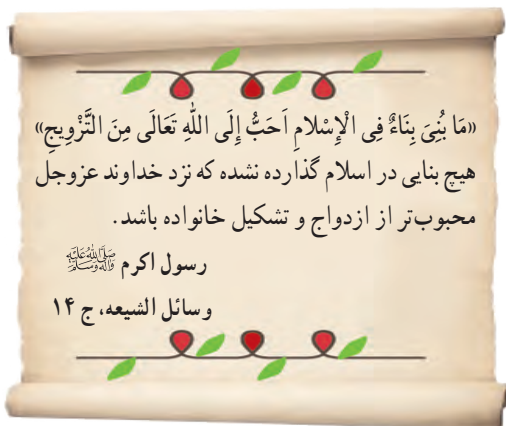 «مَا بُنِیَ بِنَاءٌ فِی الْإِسْلامِ اَحَبُّ إِلَی اللّٰهِ تَعَالَی مِنَ التَّزْوِیجِ»
هیچ بنایی در اسلام گذارده نشده که نزد خداوند عزوجل
محبوب‌تر از ازدواج و تشکیل خانواده باشد.
رسول اکرم صَلَّی‌اللّٰهُ‌عَلَیْهِ‌وَآلِهِ‌وَسَلَّمَ
وسائل الشیعه، ج ۱۴